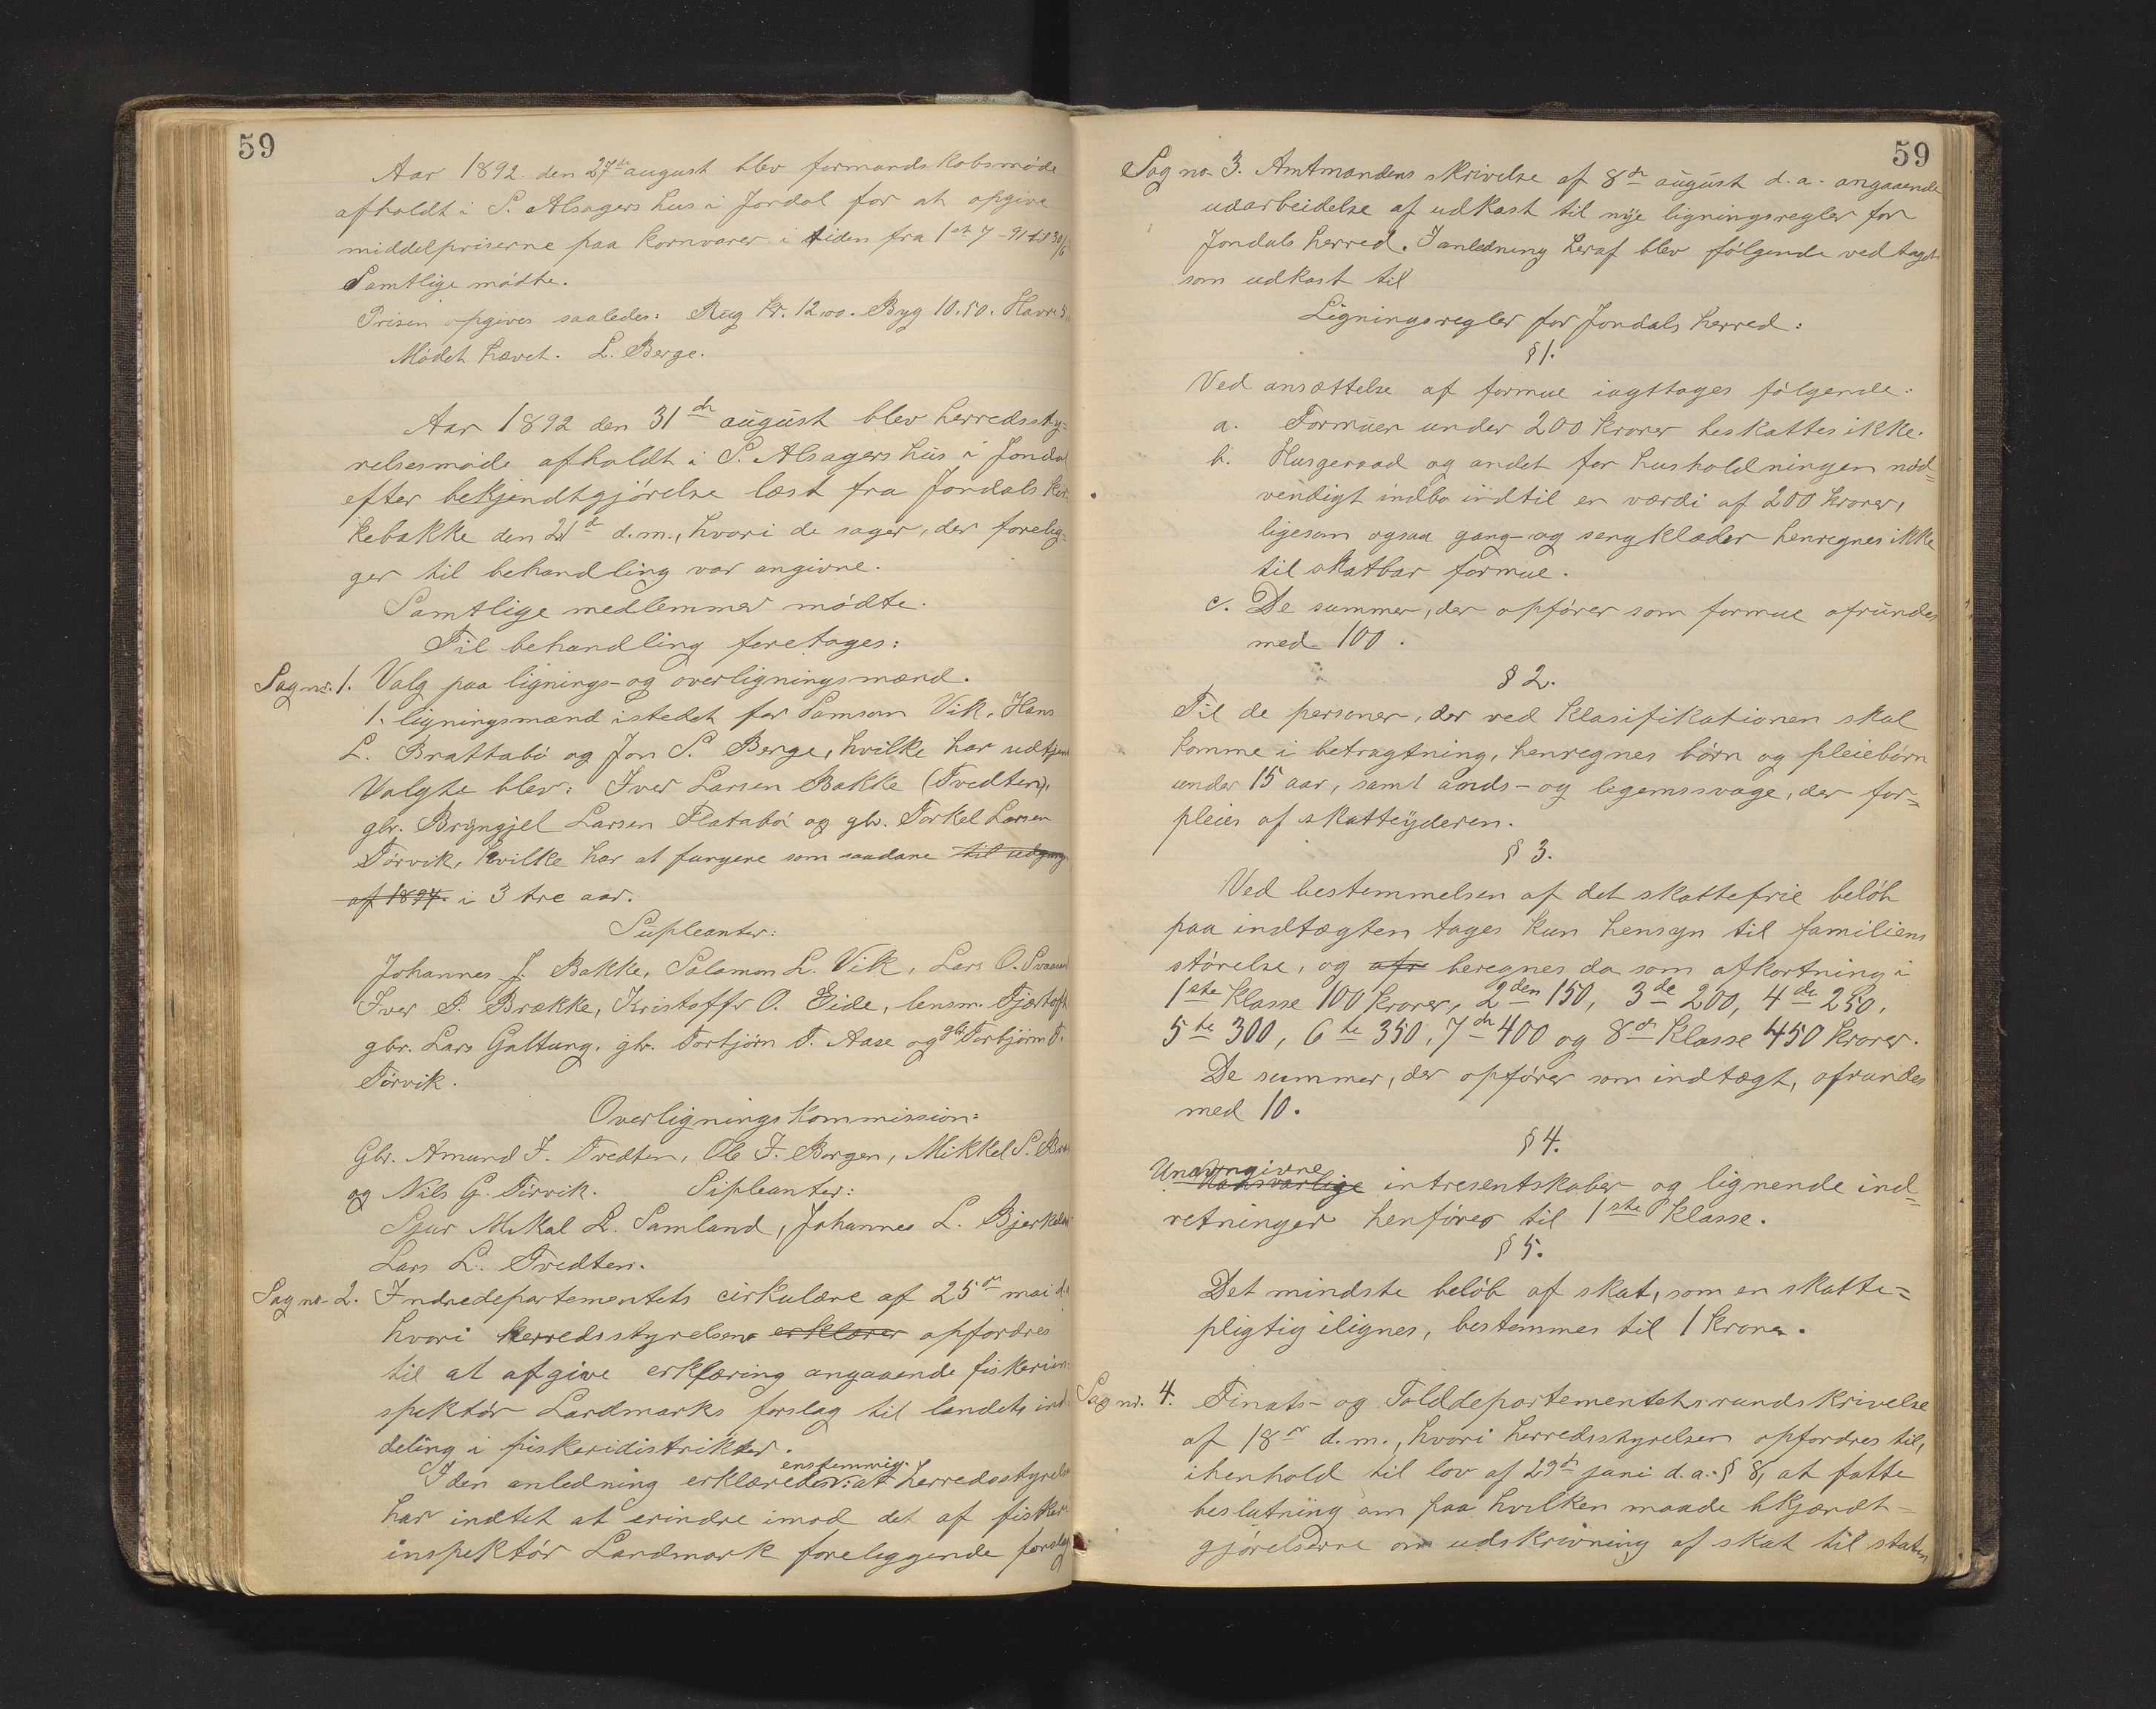 59
Aar 1892 den 27de august blev formandskabsmøde
afholdt i S. Alsagers hus i Jondal for at opgive
middelpriserne paa kornvarer i tiden fra 1st 7 - 91 til 30/6
Samtlige mødte.
Prisen opgives saaledes: Rug Kr. 12,00. Byg 10.50. Havre
Mødet hævet. L. Berge.
Aar 1892 den 31de august blev herredssty-
relsesmøde afholdt i S. Alsagers hus i Jondal
efter bekjendtgjørelse læst fra Jondals kir-
kebakke den 21de d.m., hvori de sager, der forelig-
ger til behandling var angivne.
Samtlige medlemmer mødte.
Til behandling foretages:
Sag nr. 1. Valg paa lignings- og overligningsmænd.
1. ligningsmænd istedet for Samson Vik, Hans
L. Brattabø og Jon S. Berge, hvilke har udtjent
Valgte blev: Iver Larsen Bakke (Tvedten),
gbr. Bryngjel Larsen Flatabø og gbr. Torkel Larsen
Tørvik, hvilke har at fungere som saadane til udgang
af 1894. i 3 tre aar.
Supleanter:
Johannes J. Bakke, Salamon L. Vik, Lars O.
Iver P. Brække, Kristoffer O. Eide, lensm. Fjærtoft
gbr. Lars Galtung, gbr. Torbjørn T. Aase og gbr. Torbjørn T.
Tørvik.
Overligningskommission:
Gbr. Amund I. Tvedten, Ole I. Borgen, Mikkel S.
og Nils G. Tørvik. Supleanter:
Sjur Mikal L. Samland, Johannes L.
Lars L. Tvedten.
Sag nr. 2. Indredepartementets cirkulære af 25de mai d.a
hvori herredsstyrelsene erklærer opfordres
til at afgive erklæring angaaende fiskeriin-
spektør Landmarks forslag til landets ind-
deling i fiskeridistrikter.
enstemmig
I den anledning erklæredes: at herredsstyrelsen
har indtet at erindre imod det af fiskeri
inspektør Landmark foreliggende forslag
59
Sag no 3. Amtmandens skrivelse af 8de august d.a. angaaende
udarbeidelse af udkast til nye ligningsregler for
Jondals herred. I anledning heraf blev følgende vedtaget
som udkast til
Ligningsregler for Jondals herred:
§ 1.
Ved ansættelse af formue iagttages følgende:
a. Formuer under 200 kroner beskattes ikke.
b. Husgeraad og andet for husholdningen nød-
vendigt indbo indtil en værdi af 200 kroner,
ligesom ogsaa gang- og sengklæder henregnes ikke
til skatbar formue.
c. De summer, der opføres som formue afrundes
med 100.
§ 2.
Til de personer, der ved klasifikationen skal
komme i betragtning, henregnes børn og pleiebørn
under 15 aar, samt ands- og legemssvage, der for-
pleies af skatteyderen.
§ 3.
Ved bestemmelsen af det skattefrie beløb
paa indtægten tages kun hensyn til familiens
størelse, og afr beregnes da som afkortning i
1ste klasse 100 kroner, 2den 150, 3de 200, 4de 250,
5te 300, 6te 350, 7de 400 og 8de klasse 450 kroner.
De summer, der opføres som indtægt, afrundes
med 10.
§ 4.
Unavngivne
intresentskaber og lignende ind-
retninger henføres til 1ste klasse.
§ 5.
Det mindste beløb af skat, som en skatte-
pligtig ilignes, bestemmes til 1 krone.
Sag nr. 4. Finats- og Tolddepartementets rundskrivelse
af 18de d.m., hvori herredsstyrelsen opfordres til,
ihenhold til lov af 29de juni d.a. § 8, at fatte
beslutning om paa hvilken maade bkjændt-
gjørelserne om udskrivning af skat til staten